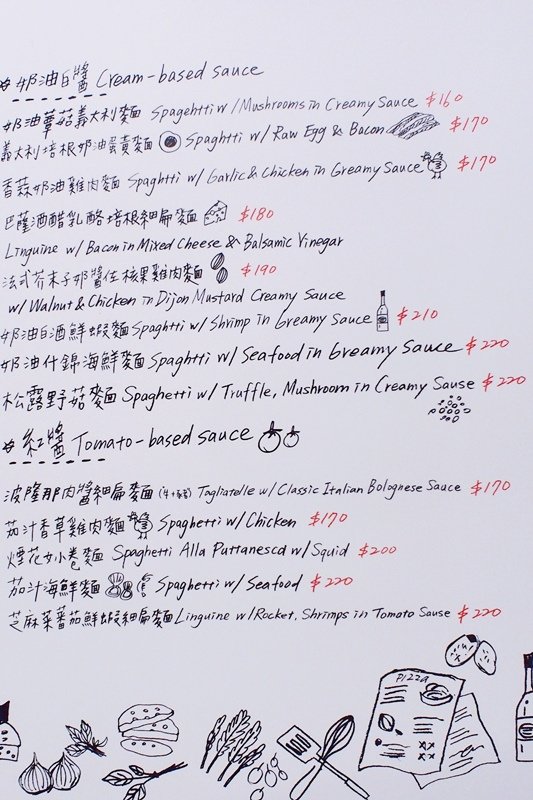 #奶油白醬 Cream-based sauce
奶油蘑菇義大利麵 Spagehtti w/Mushrooms in Creamy Sauce $160
義大利培根奶油蛋黃麵 Spaghtti w/ Raw Egg & Bacon $170
香蒜奶油雞肉麵 Spaghtti w/ Garlic & Chicken in Greamy Sauce $170
巴薩酒醋乳酪培根細扁麵 $180
Linguine w/ Bacon in Mixed Cheese & Balsamic Vinegar
法式芥末子奶醬佐核果雞肉麵 $190
w/ Walnut & Chicken in Dijon Mustard Creamy Sauce
奶油白酒鮮蝦麵 Spaghtti w/ Shrimp in Greamy Sauce $210
奶油什錦海鮮麵 Spaghtti w/ Seafood in Greamy Sauce $220
松露野菇麵 Spaghetti w/ Truffle, Mushroom in Creamy Sause $220
#紅醬 Tomato-based sauce
波隆那肉醬細扁麵 Tagliatelle w/ Classic Italian Bolognese Sauce $170
茄汁香草雞肉麵 Spaghetti w/ Chicken $170
煙花女小卷麵 Spaghetti Alla Puttanesca w/ Squid $200
茄汁海鮮麵 Spaghetti w/ Seafood $220
芝麻菜番茄鮮蝦細扁麵 Linguine w/Rocket, Shrimps in Tomato Sause $220
PIZZA